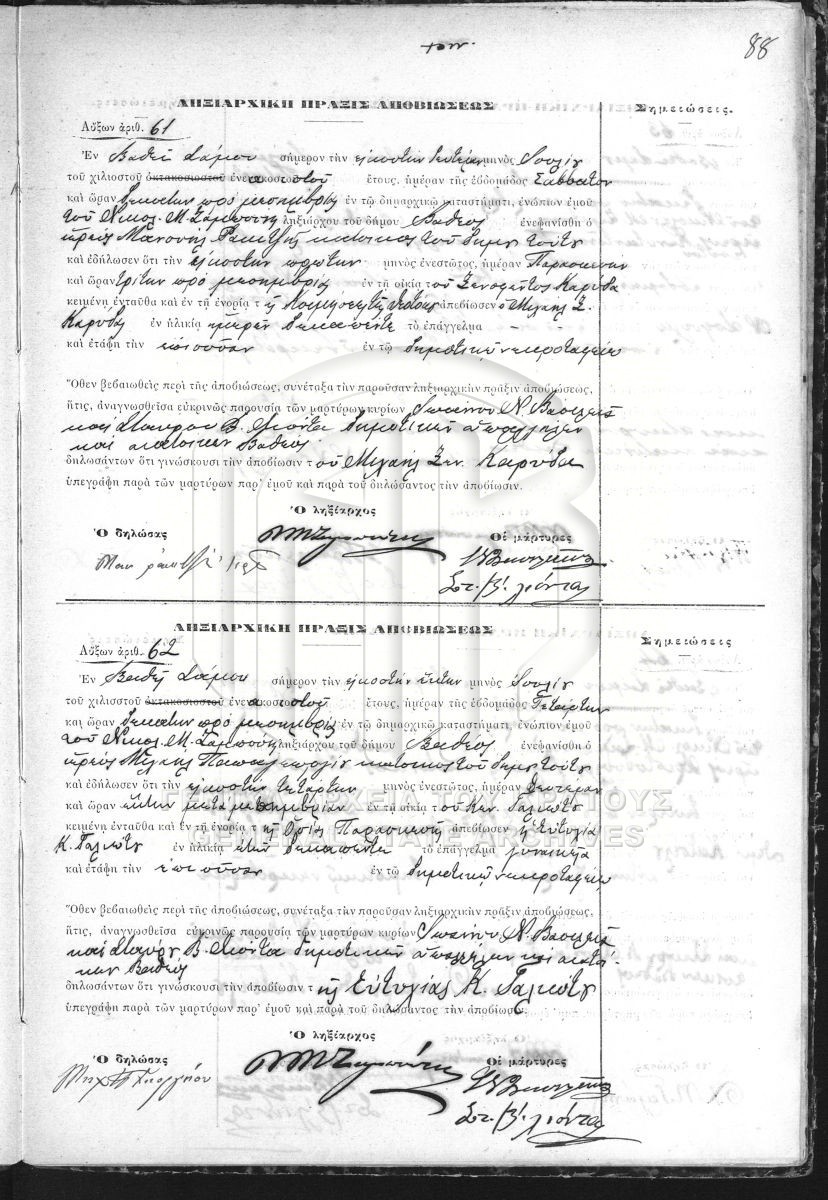 88
ΛΗΞΙΑΡΧΙΚΗ ΠΡΑΞΙΣ ΑΠΟΒΙΩΣΕΩΣ
Σημειώσεις.
Αὔξων ἀριθ. 61
Ἐν Βαθεῖ Σάμου σήμερον τὴν εἰκοστὴν δευτέραν μηνὸς Ἰουλίου
τοῦ χιλιοστοῦ ὀκτακοσιοστοῦ ἐνεακοσιοστοῦ ἔτους, ἡμέραν τῆς ἑβδομάδος Σάββατον
καὶ ὥραν δεκάτην πρὸ μεσημβρίας ἐν τῷ δημαρχικῷ καταστήματι, ἐνώπιον ἐμοῦ
τοῦ Νικολ. Μ. ληξιάρχου τοῦ δήμου Βαθέος ἐνεφανίσθη ὁ
ἱερεὺς Μανουὴλ κάτοικος τοῦ δήμου τούτου
καὶ ἐδήλωσεν ὅτι τὴν εἰκοστὴν πρώτην μηνὸς ἐνεστῶτος, ἡμέραν Παρασκευὴν
καὶ ὥραν τρίτην πρὸ μεσημβρίας ἐν τῇ οἰκίᾳ τοῦ Ξενοφῶντος Καρύδα
κειμένῃ ἐνταῦθα καὶ ἐν τῇ ἐνορίᾳ τῆς Κοιμήσεως τῆς Θεοτόκου ἀπεβίωσεν ὁ Μιχαὴλ Ξ.
Καρύδας ἐν ἡλικίᾳ ἡμερῶν δεκαπέντε τὸ ἐπάγγελμα
καὶ ἐτάφη τὴν ἐπιοῦσαν ἐν τῷ δημοτικῷ νεκροταφείῳ
Ὅθεν βεβαιωθεὶς περὶ τῆς ἀποβιώσεως, συνέταξα τὴν παροῦσαν ληξιαρχικὴν πρᾶξιν ἀποβιώσεως,
ἥτις, ἀναγνωσθεῖσα εὐκρινῶς παρουσίᾳ τῶν μαρτύρων κυρίων Ἰωάννου Ν.
καὶ Σταύρου Β. Λιόντα δημοτικῶν ὑπαλλήλων
καὶ κατοίκων Βαθέος
δηλωσάντων ὅτι γινώσκουσι τὴν ἀποβίωσιν τοῦ Μιχαὴλ Ξεν. Καρύδα
ὑπεγράφη παρὰ τῶν μαρτύρων παρ' ἐμοῦ καὶ παρὰ τοῦ δηλώσαντος τὴν ἀποβίωσιν.
Ὁ ληξίαρχος
Ὁ δηλώσας
Οἱ μάρτυρες
Στ. Β. Λιόντας
ΛΗΞΙΑΡΧΙΚΗ ΠΡΑΞΙΣ ΑΠΟΒΙΩΣΕΩΣ
Σημειώσεις
Αὔξων ἀριθ. 62
Ἐν Βαθεῖ Σάμου σήμερον τὴν εἰκοστὴν ἕκτην μηνὸς Ἰουλίου
τοῦ χιλιοστοῦ ὀκτακοσιοστοῦ ἐνεακοσιοστοῦ ἔτους, ἡμέραν τῆς ἑβδομάδος Τετάρτην
καὶ ὥραν δεκάτην πρὸ μεσημβρίας ἐν τῷ δημαρχικῷ καταστήματι, ἐνώπιον ἐμοῦ
τοῦ Νικολ. Μ. ληξιάρχου τοῦ δήμου Βαθέος ἐνεφανίσθη ὁ
ἱερεὺς Μιχαὴλ κάτοικος τοῦ δήμου τούτου
καὶ ἐδήλωσεν ὅτι τὴν εἰκοστὴν τετάρτην μηνὸς ἐνεστῶτος, ἡμέραν Δευτέραν
καὶ ὥραν ἕκτην μετὰ μεσημβρίαν ἐν τῇ οἰκίᾳ τοῦ Κων. Γαλιώτου
κειμένῃ ἐνταῦθα καὶ ἐν τῇ ἐνορίᾳ τῆς Ἁγίας Παρασκευῆς ἀπεβίωσεν ἡ Εὐτυχία
Κ. Γαλιώτου ἐν ἡλικίᾳ ἐτῶν δεκαπέντε τὸ ἐπάγγελμα
καὶ ἐτάφη τὴν ἐπιοῦσαν ἐν τῷ δημοτικῷ νεκροταφείῳ
ΓΕΝΙΚΑ ΑΡΧΕΙΑ ΤΟΥ ΚΡΑΤΟΥΣ
GENERAL STATE ARCHIVES
Ὅθεν βεβαιωθεὶς περὶ τῆς ἀποβιώσεως, συνέταξα τὴν παροῦσαν ληξιαρχικὴν πρᾶξιν ἀποβιώσεως,
ἥτις, ἀναγνωσθεῖσα εὐκρινῶς παρουσίᾳ τῶν μαρτύρων κυρίων Ἰωάννου Ν.
καὶ Σταύρου Β. Λιόντα δημοτικῶν ὑπαλλήλων καὶ κατοί-
κων Βαθέος
δηλωσάντων ὅτι γινώσκουσι τὴν ἀποβίωσιν τῆς Εὐτυχίας Κ. Γαλιώτου
ὑπεγράφη παρὰ τῶν μαρτύρων παρ' ἐμοῦ καὶ παρὰ τοῦ δηλώσαντος τὴν ἀποβίωσιν.
Ὁ ληξίαρχος
Ὁ δηλώσας
Οἱ μάρτυρες
Στ. Β. Λιόντας